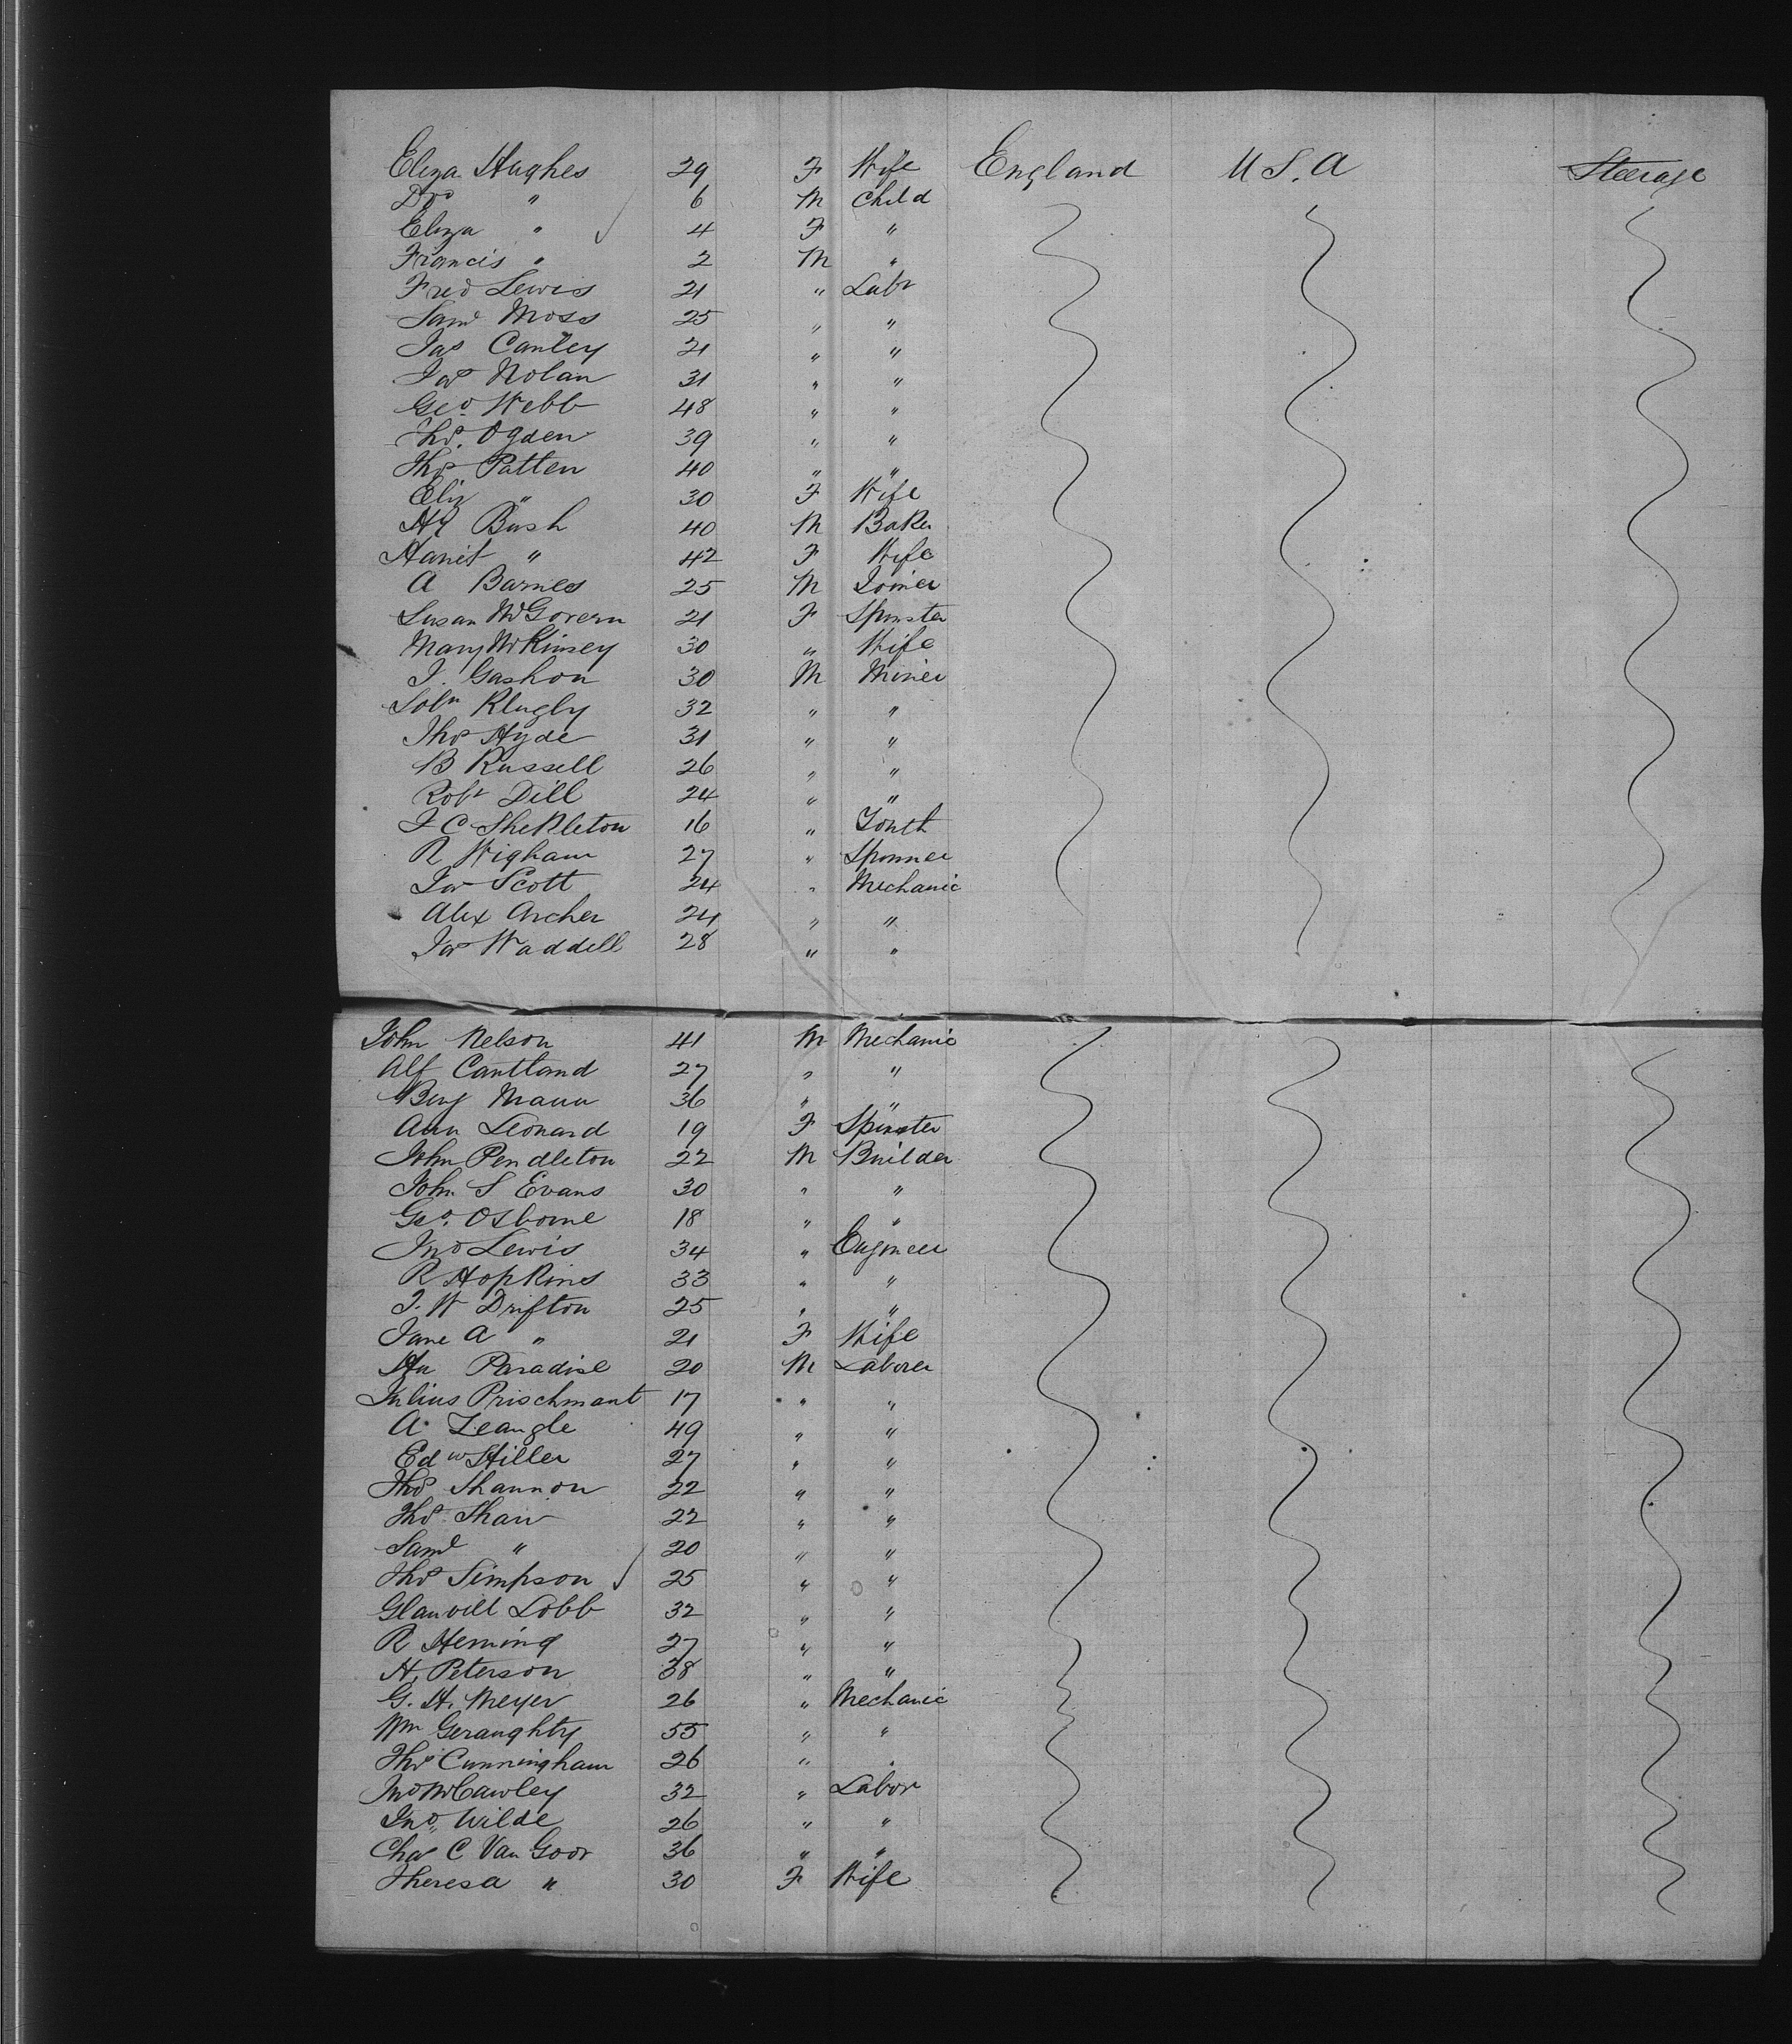 Eliza Hughes 29 F Wife England U.S.A Steerage
Do " 6 M Child
Eliza " 4 F "
Francis " 2 M "
Fred Lewis 21 " Labr
Saml Moss 25 " "
Jas Canley 21 " "
Jas Nolan 31 " "
Geo Webb 48 " "
Thos. Ogden 39 " "
Thos Patten 40 " "
Eliz " 30 F Wife
Hy Bush 40 M Baker
Harriet " 42 F Wife
A Barnes 25 M Joiner
Susan McGovern 21 F Spinster
Mary McKinsey 30 " Wife
J. Gashon 30 M Miner
Soln Klugly 32 " "
Thos Hyde 31 " "
B Russell 26 " "
Robt Dill 24 " "
J C Shekleton 16 " Youth
R Wigham 27 " Spinner
Jas Scott 24 " Mechanic
Alex Archer 24 " "
Jas Waddell 28 " "
John Nelson 41 M Mechanic
Alf Cantland 27 " "
Benj Mann 36 " "
Ann Leonard 19 F Spinster
John Pendleton 22 M Builder
John S Evans 30 " "
Geo. Osborne 18 " "
Jno Lewis 34 " Engineer
R Hopkins 33 " "
J. W Drifton 25 " "
Jane A " 21 F Wife
Hn Paradise 20 M Laborer
Julius Prischmant 17 " "
A Zeangle 49 " "
Edw Hiller 27 " "
Thos Shannon 22 " "
Thos Shaw 22 " "
Saml " 20 " "
Thos Simpson 25 " "
Glanvill Lobb 32 " "
R Heming 27 " "
H. Peterson 38 " "
G. H. Meyer 26 " Mechanic
Wm Geraughty 55 " "
Thos Cunningham 26 " "
Jno McCawley 32 " Labor
Jno. Wilde 26 " "
Chas C Van Goor 36 " "
Theresa " 30 F Wife